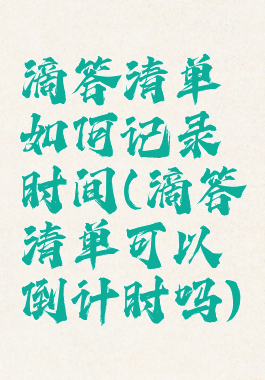 滴答清单
如何记录
时间(滴答
清单可以
倒计时吗)